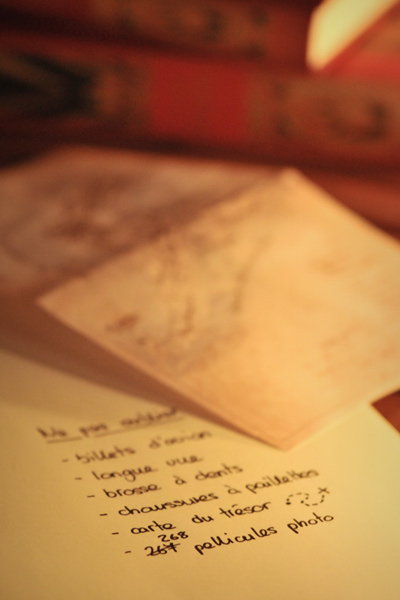 Ne pas oublier
- billets d'avion
- longue vue
- brosse à dents
- chaussures à paillettes
- carte du trésor
268
- 267 pellicules photo